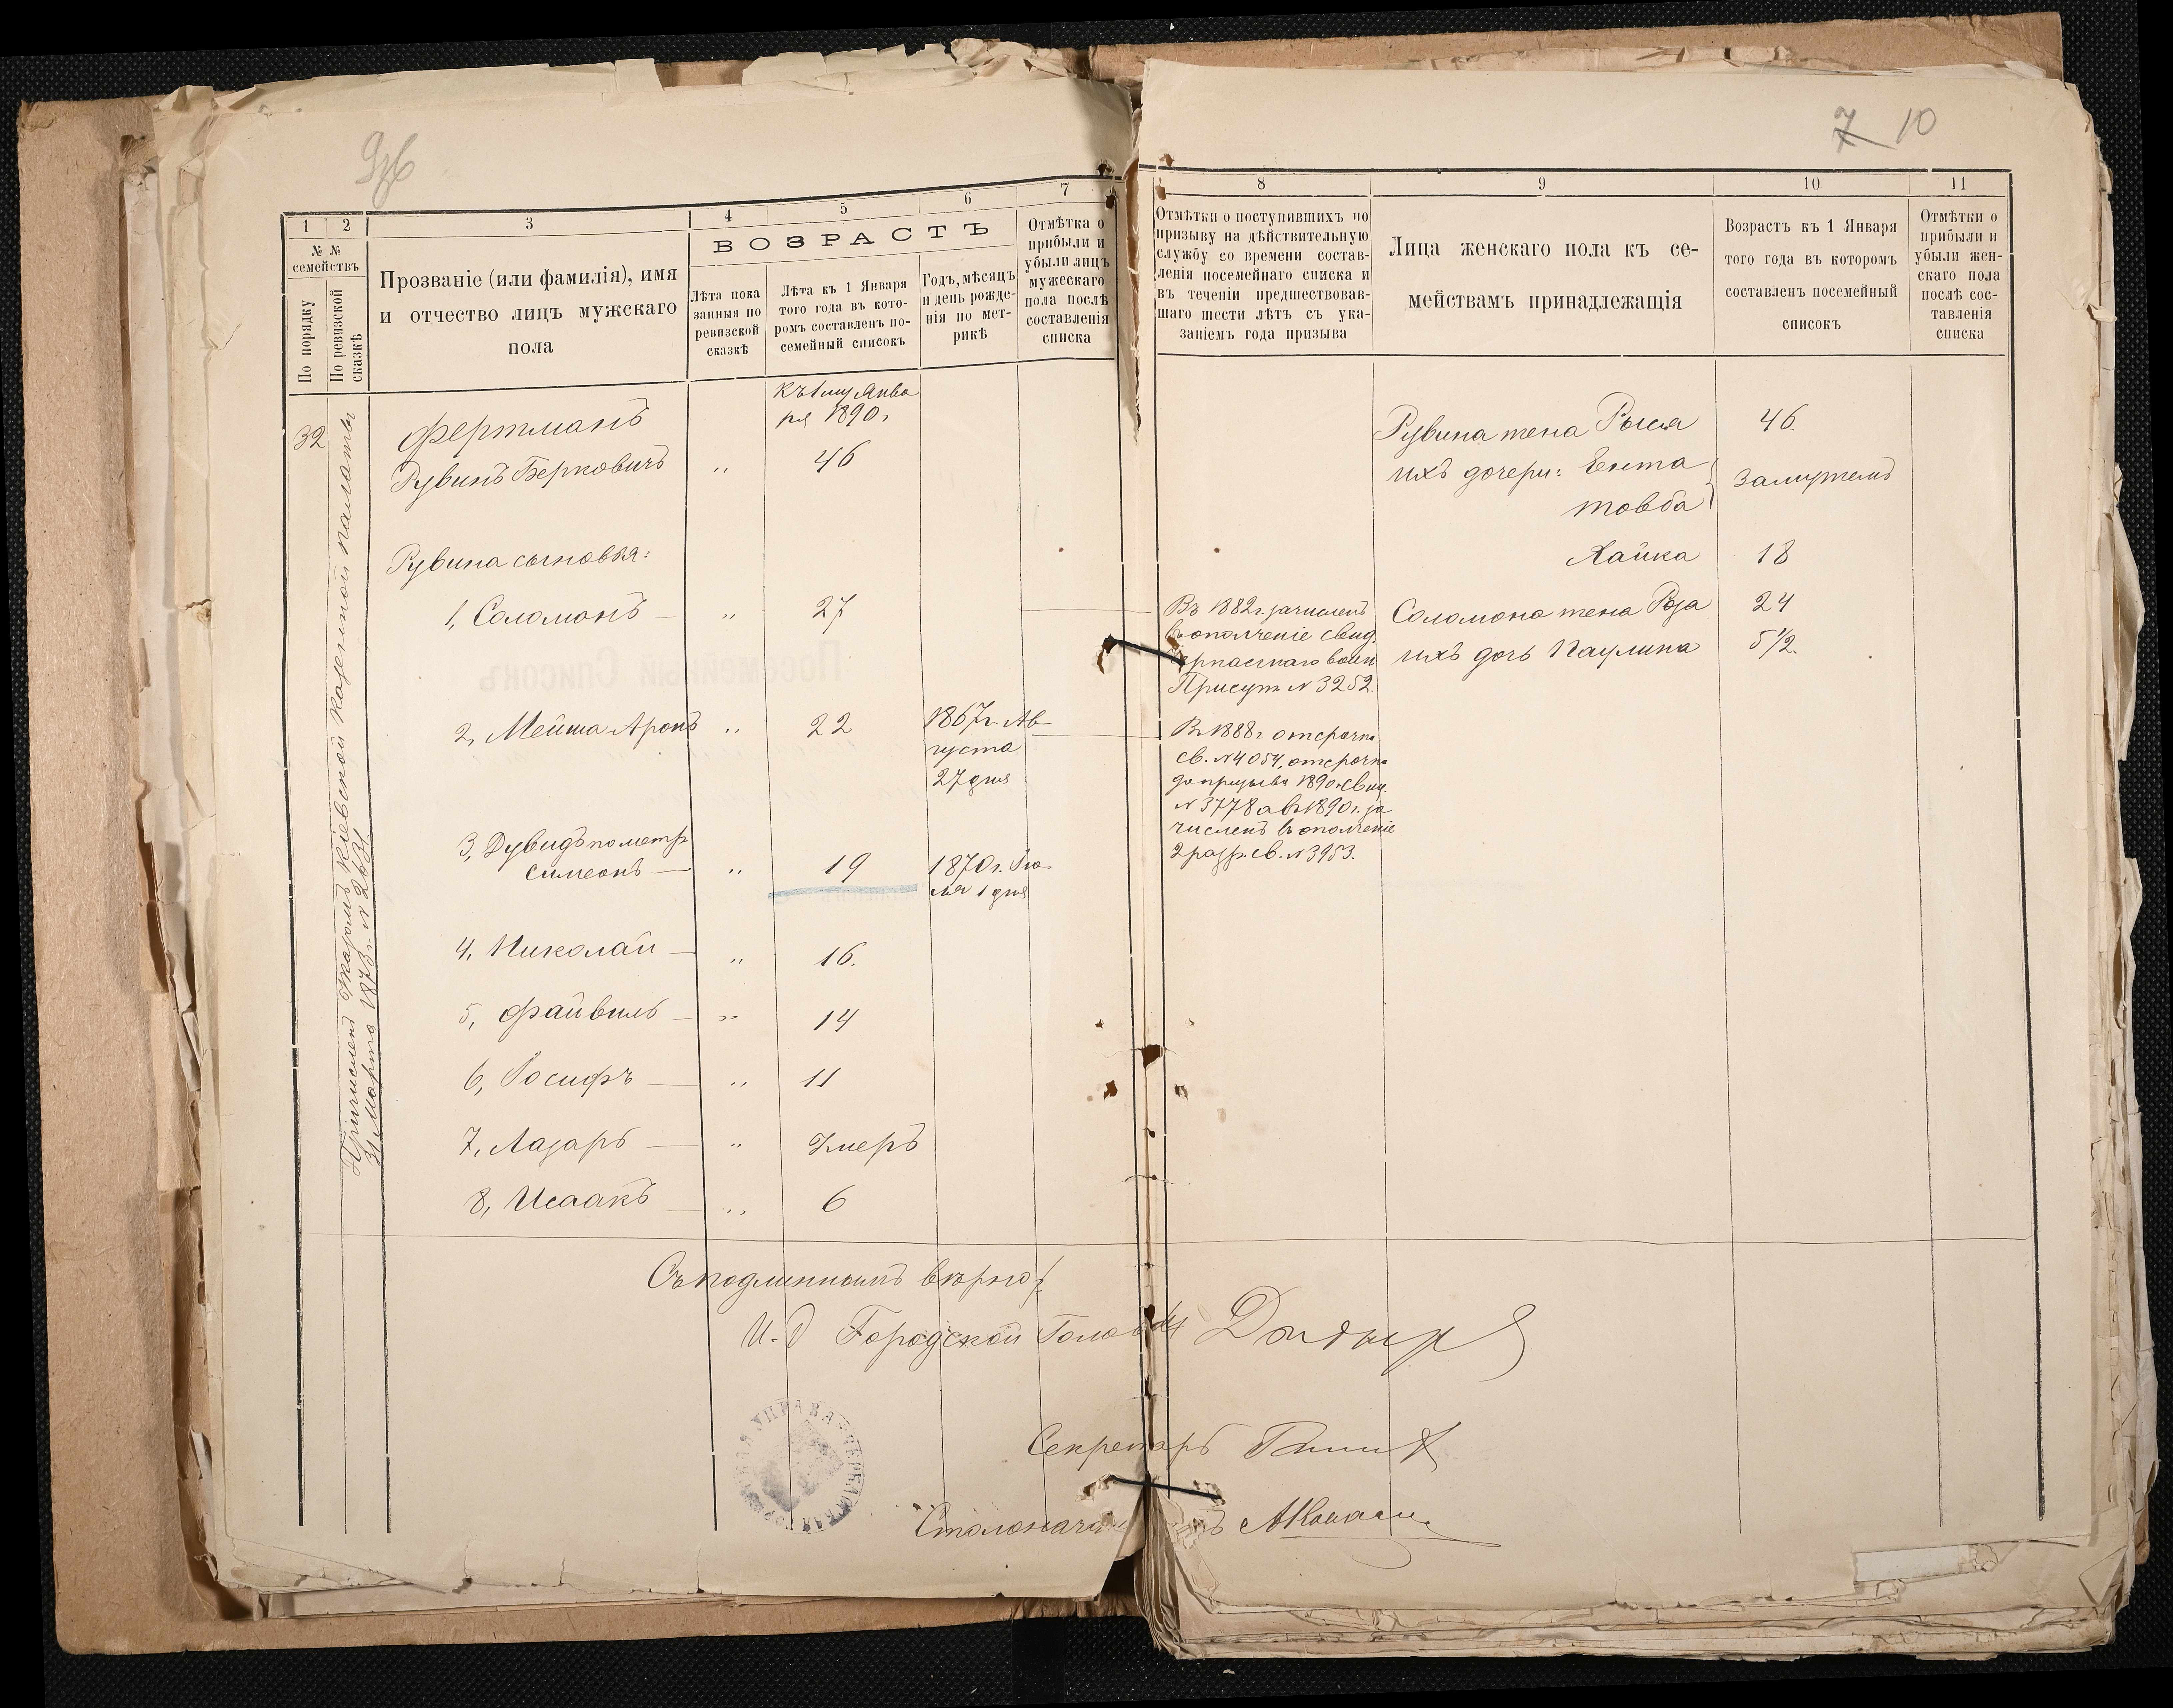 7 10
1
2
3
4
5
6
7
№ №
семействъ
По порядку
По ревизской
сказкѣ
Прозваніе (или фамилія), имя
и отчество лицъ мужскаго
пола
ВОЗРАСТЪ
Лѣта пока
занныя по
ревизской
сказкѣ
Лѣта къ 1 Января
того года въ кото-
ромъ составленъ по-
семейный списокъ
Годъ, мѣсяцъ
и день рожде-
нія по мет-
рикѣ
Отмѣтка о
прибыли и
убыли лицъ
мужескаго
пола послѣ
составленія
списка
8
9
10
11
Отмѣтки о поступившихъ по
призыву на дѣйствительную
службу со времени состав-
ленія посемейнаго списка и
въ теченіи предшествовав-
шаго шести лѣтъ съ ука-
заніемъ года призыва
Лица женскаго пола къ се-
мействамъ принадлежащія
Возрастъ къ 1 Января
того года въ которомъ
составленъ посемейный
списокъ
Отмѣтки о
прибыли и
убыли жен-
скаго пола
послѣ сос-
тавленія
списка
Къ 1му Янва
ря 1890 г
32
Причисленъ Указомъ Кіевской Казенной палаты
31 Марта 1873 г. N 2631.
Фертманъ
Рувинъ Берковичъ " 46
Рувина сыновья:
1, Соломонъ — " 27
2, Мейша Аронъ " 22
1867 г. Ав
густа
27 дня
3, Дувидъ по метр
Симеонъ — " 19
1870 г. Iю
ля 1 дня
4, Николай — " 16.
5, Файвиль — " 14
6, Іосифъ — " 11
7, Лазарь — " Умеръ
8, Исаакъ — " 6
Въ 1882 г. зачисленъ
въ ополченіе свид.
Черкасскаго воин
Присут N 3252.
Въ 1888 г. отсрочка
св. N 4054, отсрочка
до призыва 1890 г. свид.
N 3778 а въ 1890 г. за
численъ въ ополченіе
2 разр. св. N 3953.
Рувина жена Рыся 46.
ихъ дочери: Ента
Товба
Замужемъ
Хайка 18
Соломона жена Роза 24
ихъ дочь Паулина 5 1/2.
Съ подлиннымъ вѣрно:
И. Д Городской Головы
Секретарь
Столоначальникъ
ГОРОДСКАЯ УПРАВА ЧЕРКАССКАЯ
Посемейный Списокъ